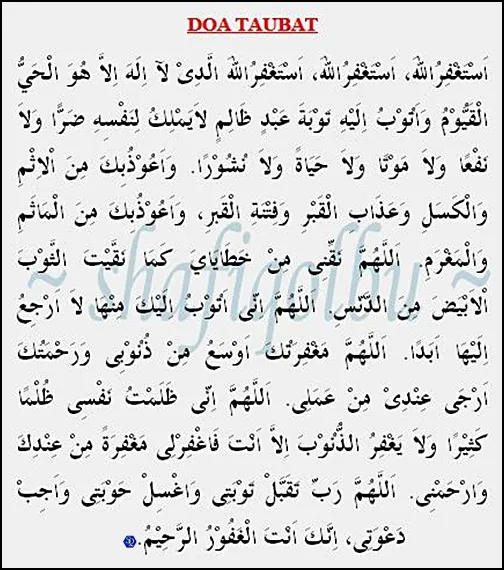 DOA TAUBAT
اَسْتَغْفِرُاللهَ، اَسْتَغْفِرُاللهَ، اَسْتَغْفِرُاللهَ الَّذِىْ لآ اِلَهَ اِلاَّ هُوَ الْحَيُّ
الْقَيُّوْمُ وَاَتُوْبُ اِلَيْهِ تَوْبَةَ عَبْدٍ ظَالِمٍ لاَيَمْلِكُ لِنَفْسِهِ ضَرًّا وَلاَ
نَفْعًا وَلاَ مَوْتًا وَلاَ حَيَاةً وَلاَ نُشُوْرًا. وَاَعُوْذُبِكَ مِنَ الْاِثْمِ
وَالْكَسَلِ وَعَذَابِ الْقَبْرِ وَفِتْنَةِ القَبرِ، وَاَعُوْذُبِكَ مِنَ الْمَاثَمِ
وَالْمَغْرَمِ. اَللَّهُمَّ نَقِّنِى مِنْ خَطَايَايَ كَمَا نَقَّيْتَ الثَّوْبَ
الْاَبْيَضَ مِنَ الدَّنَسِ. اَللَّهُمَّ اِنِّى اَتُوْبُ اِلَيْكَ مِنْهَا لاَ اَرْجِعُ
اِلَيْهَا اَبَدًا. اَللَّهُمَّ مَغْفِرَتُكَ اَوْسَعُ مِنْ ذُنُوْبِى وَرَحْمَتُكَ
اَرْجَى عِنْدِىْ مِنْ عَمَلِى. اَللَّهُمَّ اِنِّى ظَلَمْتُ نَفْسِى ظُلْمًا
كَثِيْرًا وَلاَ يَغْفِرُ الذُّنُوْبَ اِلاَّ اَنْتَ فَاغْفِرْلِى مَغْفِرَةً مِنْ عِنْدِكَ
وَارْحَمْنِى. اَللَّهُمَّ رَبِّ تَقَبَّلْ تَوْبَتِى وَاغْسِلْ حَوْبَتِى وَاَجِبْ
دَعْوَتِى، اِنَّكَ اَنْتَ الْغَفُوْرُ الرَّحِيْمُ.
~ shafiqolbu ~